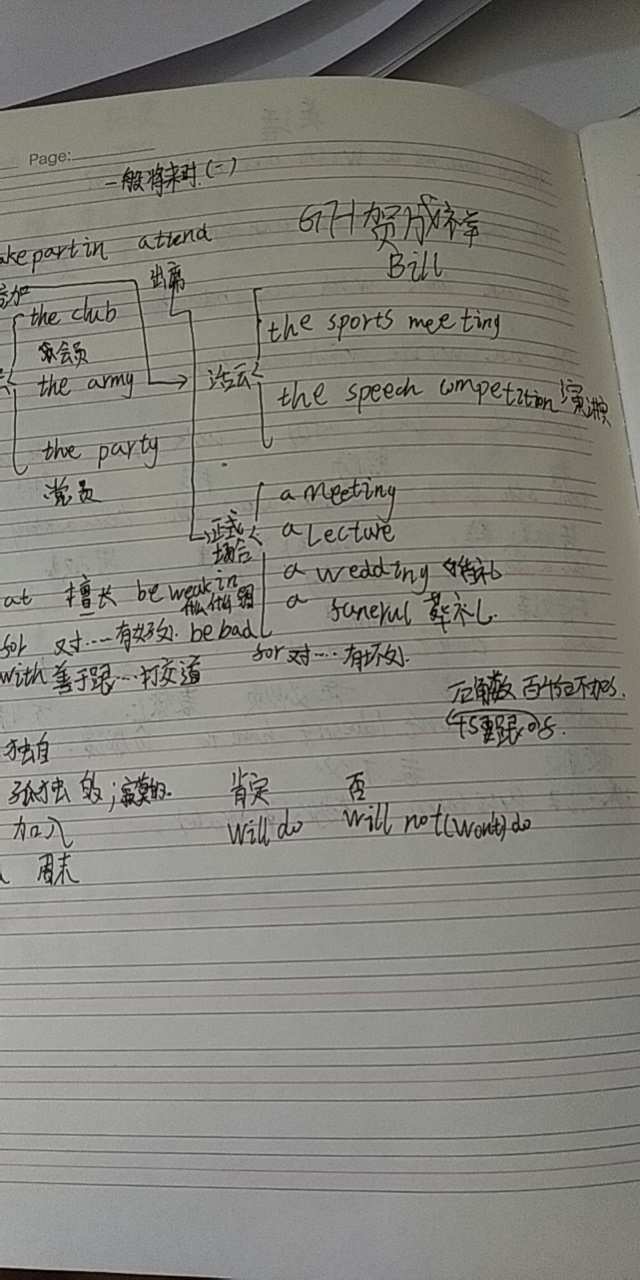 Page:
一般将来时.(一)
take part in attend
G7H 贺成祥
参加 出席 Bill
the club
会员
the sports meeting
the army 活动
the speech competition 演讲
the party
党员
a meeting
正式场合 a Lecture
a wedding 婚礼
at 擅长 be weak in
a funerul 葬礼.
for 对……有好处. be bad for 对……有坏处.
with 善于跟…打交道
百千亿不加s.
+s要跟of.
独自
孤独的;寂寞的. 肯定 否
加入 will do will not(won't) do
周末